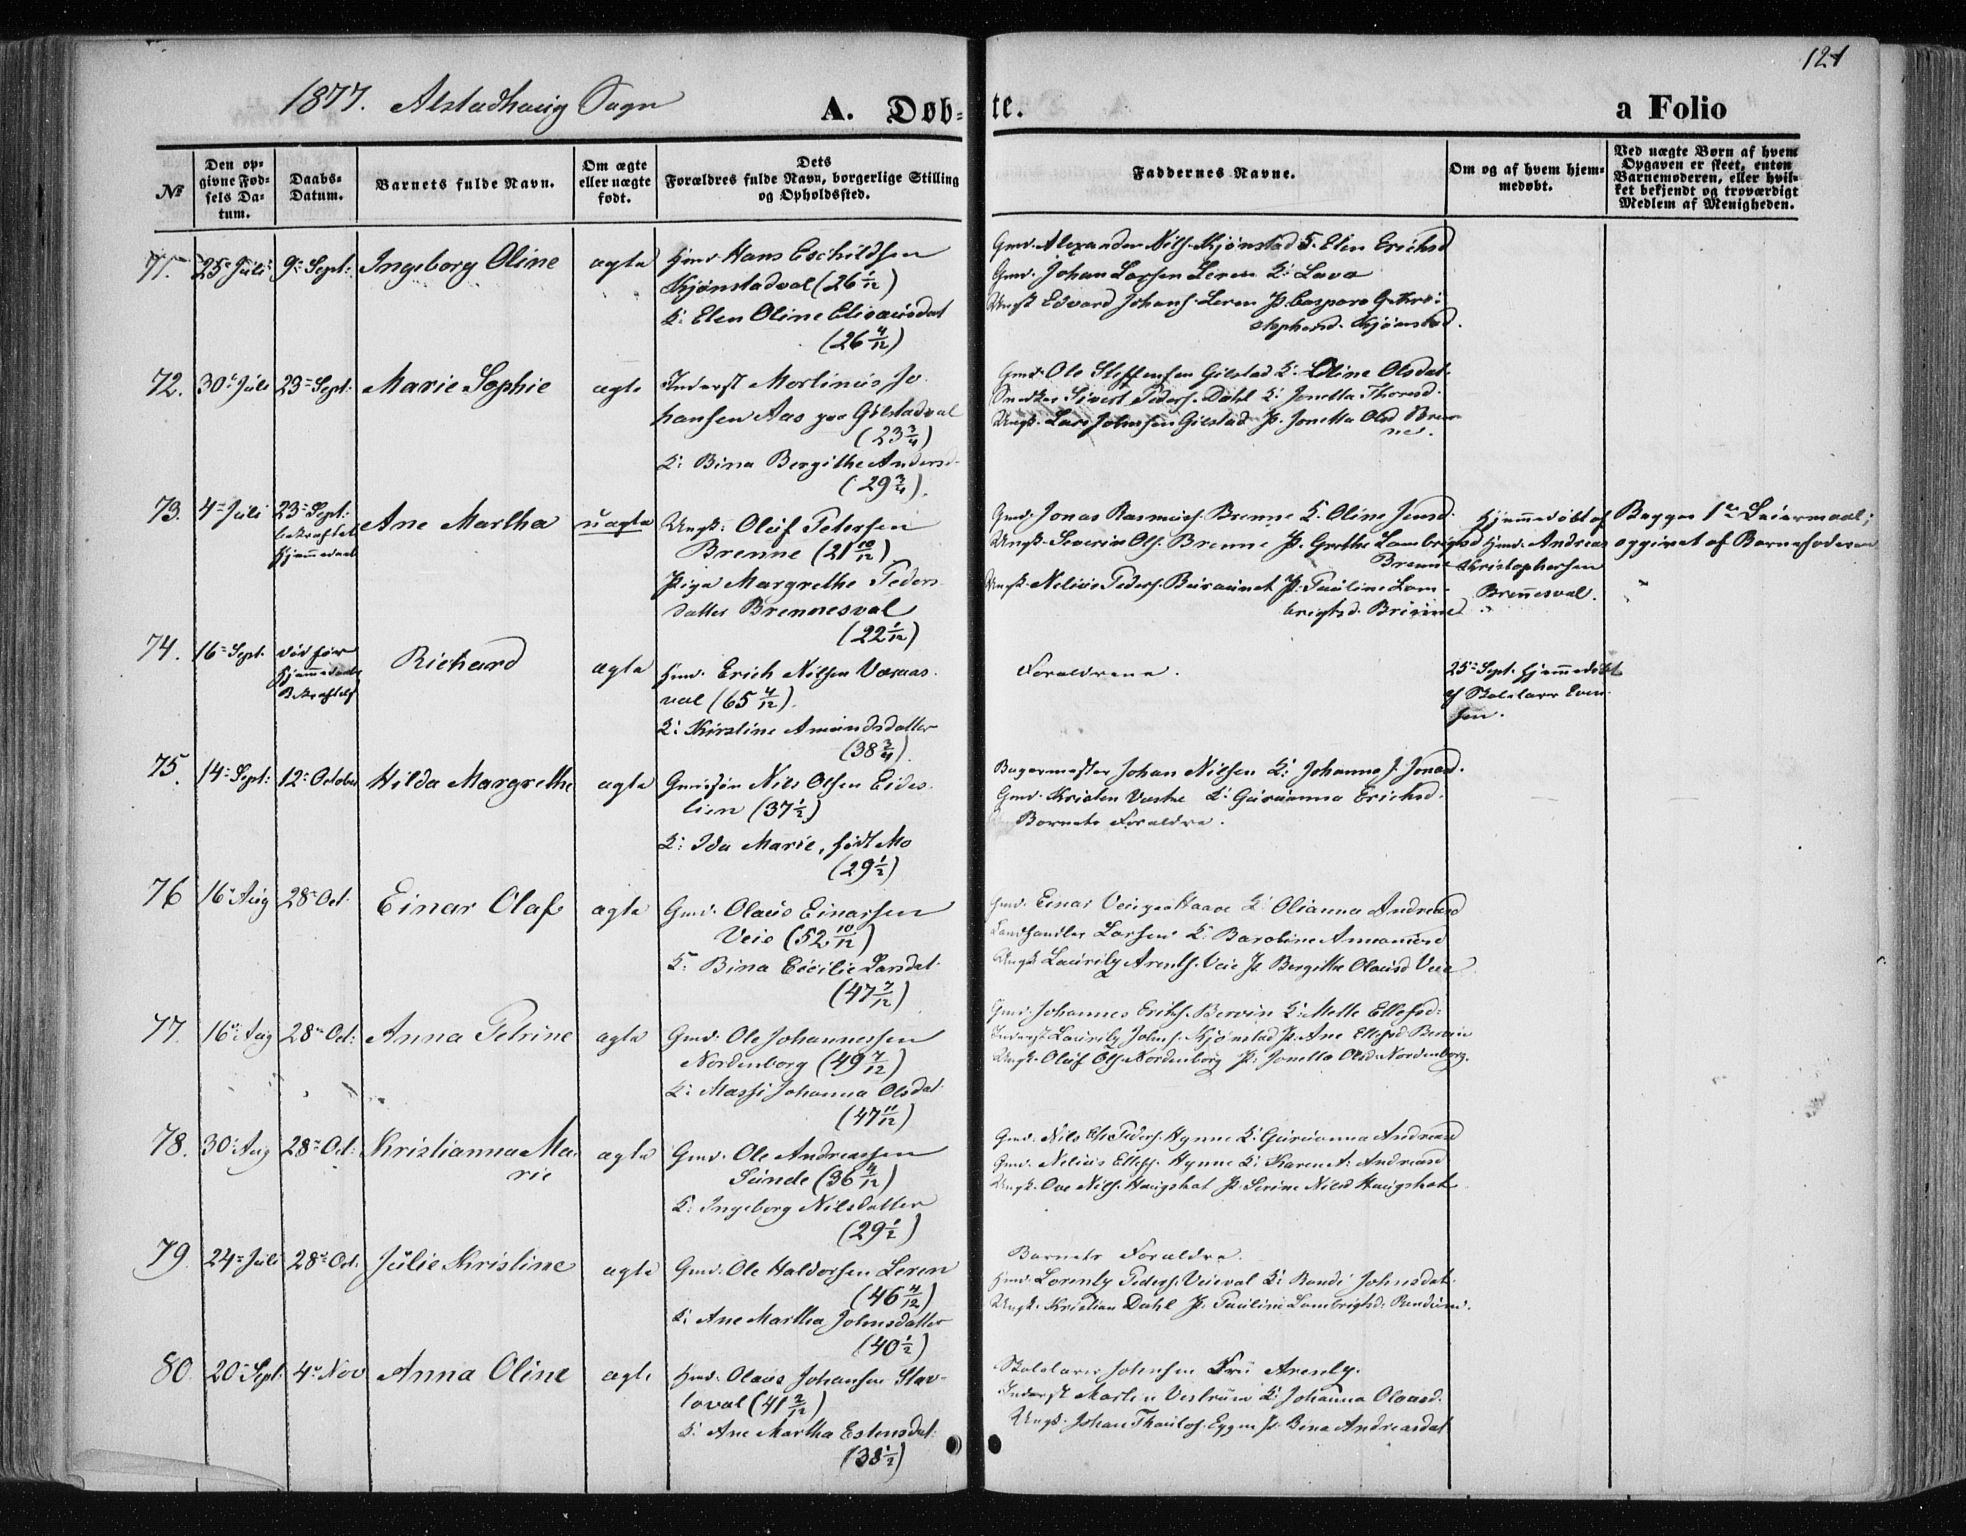 121
1877. Alstadhaug Sogn
A. Døb=
te.
a Folio
№
Den op=
givne Fød=
sels Da=
tum.
Daabs=
Datum.
Barnets fulde Navn.
Om ægte
eller uægte
født.
Dets
Forældres fulde Navn, borgerlige Stilling
og Opholdssted.
Faddernes Navne.
Om og af hvem hjem=
medøbt.
Ved uægte Børn af hvem
Opgaven er skeet, enten
Barnemoderen, eller hvil=
ket bekjendt og troværdigt
Medlem af Menigheden.
71. 25 Juli 9 Sept: Ingeborg Oline ægte
Hmd. Hans Eschildsen
Kjønstadval (26 1/12)
K: Elen Oline Elisæusdat
(26 4/12)
Gmd. Alexander Nils. Kjønstad K. Elen Erichsd
Gmd. Johan Larsen Leren K: Lava
Ungk Edvard Johans. Leren P. Caspara G. Kri=
stophersd. Kjønstad.
72. 30 Juli 23 Sept: Marie Sophie ægte
Inderst Mortinus Jo
hansen Aas paa Gilstadval
(23 3/4)
K: Bina Bergithe Andersd
(29 3/4).
Gmd. Ole Steffensen Gilstad K. Oline Olsdat.
Snedker Sivert Peders. Dahl K: Jonetta Thoresd.
Ungk. Lars Johnsen Gilstad P. Jonetta Olsd Bren
ne.
73. 4 Juli 23 Sept: Ane Martha uægte
bekræftet
Hjemmedaab
Ungk: Oluf Petersen
Brenne (21 10/12)
Pige Margrethe Peders
datter Brennesval
(22 1/12)
Gmd. Jonas Rasmus. Brenne K. Oline Jensd.
Ungk. Severin Ols. Brenne P. Grethe Lambrigtsd
Brenne
Ungk. Nelius Peders. Buraunet P. Pauline Lam-
brigtsd. Brenne
Hjemmedøbt af
Hmd. Andreas
Kristophersen
Brennesval.
Begges 1ste Leiermaal;
opgivet af Barnefaderen
74. 16 Sept. Richard ægte
død før
Hjemmedaabs
Bekræftels
Hmd. Erich Nilsen Væraas
val (65 4/12).
K: Kirstine Amundsdatter
(38 3/4).
Forældrene.
25 Sept. hjemmedøbt
af Skolelærer Even
sen.
75. 14 Sept: 12 October Hilda Margrethe ægte
Gmdsøn Nils Olsen Eides
lien (37 1/2)
K: Ida Marie, født Mo
(29 1/2)
Bagermester Johan Nilsen K: Johanna J. Jonasd.
Gmd. Kristen Vestre K: Guruanna Erichsd.
Barnets Forældre.
76 16 Aug 28 Oct. Einar Olaf ægte
Gmd. Olaus Einarsen
Veie (52 10/12)
K. Bina Cecilie Larsdat.
(47 7/12)
Gmd. Einar Veie paa Haave K: Olianna Andreasd
Landhandler Larsen K: Baroline
Ungk. Lauritz Arents. Veie P. Bergithe Olausd Veie
77. 16 Aug 28 Oct: Anna Petrine ægte
Gmd. Ole Johannessen
Nordenborg (49 7/12)
K: Massi Johanna Olsdat
(47 11/12)
Gmd. Johannes Erichs. Bervin K: Mette Ellefsd.
Inderst Lauritz Johns. Kjønstad P. Ane Ellefsd Bervin
Ungk. Oluf Ols. Nordenborg P. Jonetta Olsd. Nordenborg.
78. 30 Aug 28 Oct: Kristianna Ma
rie ægte
Gmd. Ole Andreassen
Sunde (36 4/12)
K. Ingeborg Nilsdatter
(29 1/2)
Gmd. Nils Peders. Hynne K: Guruanna Andreasd
Gmd. Nelius Ellefs. Hynne K: Karen A. Andreasd
Ungk. Ove Nils. Haugskot P. Serine Nilsd Haugskot
79. 24 Juli 28 Oct. Julie Kristine ægte
Gmd. Ole Haldorsen Leren
(46 4/12)
K. Ane Martha Johnsdatter
(40 1/2)
Barnets Forældre.
Hmd. Lorentz Peders. Veieval K: Randi Johnsdat.
Ungk. Kristian Dahl P. Pauline Lambrigtsd.
80. 20 Sept. 4 Nov Anna Oline ægte
Hmd. Olaus Johansen Stav-
loval (41 2/12)
K. Ane Martha Estensdat.
(38 1/2)
Skolelærer Johnsen Fru Arentz.
Inderst Martin Vestrum K: Johanna Olausd.
Ungk. Johan Thaulos. Eggen P. Bina Andreasdat